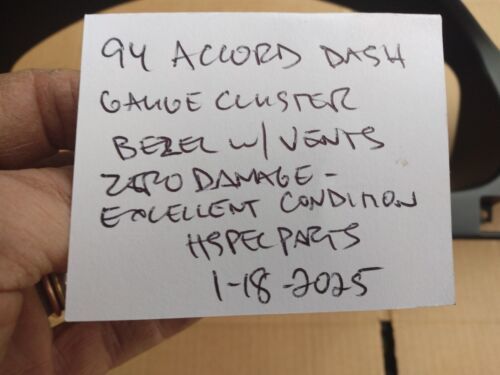 94 ACCORD DASH
GAUGE CLUSTER
BEZEL W/ VENTS
ZERO DAMAGE -
EXCELLENT CONDITION
HSPECPARTS
1-18-2025